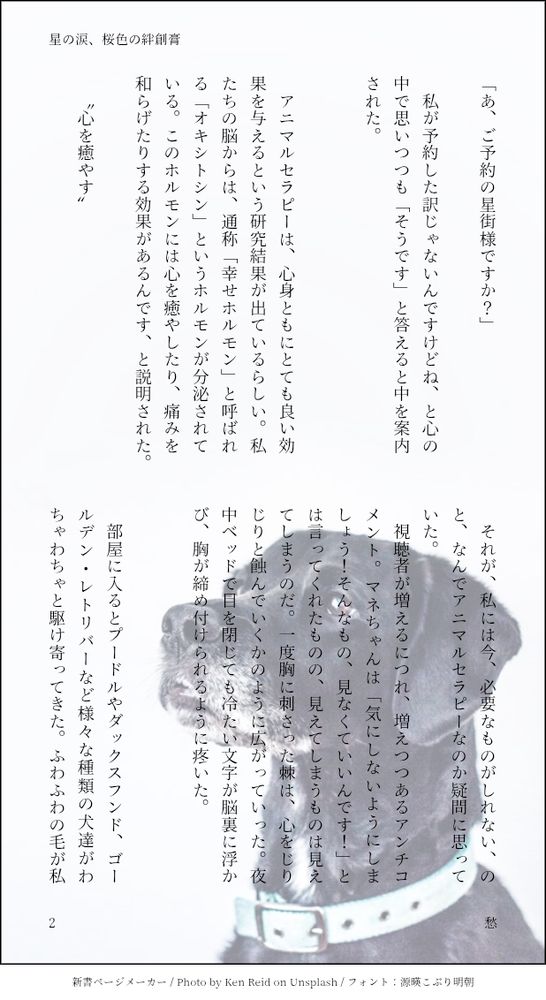 星の涙、桜色の絆創膏
「あ、ご予約の星街様ですか？」
私が予約した訳じゃないんですけどね、と心の
中で思いつつも「そうです」と答えると中を案内
された。
アニマルセラピーは、心身ともにとても良い効
果を与えるという研究結果が出ているらしい。私
たちの脳からは、通称「幸せホルモン」と呼ばれ
る「オキシトシン」というホルモンが分泌されて
いる。このホルモンには心を癒やしたり、痛みを
和らげたりする効果があるんです、と説明された。
〝心を癒やす〟
それが、私には今、必要なものがしれない、の
と、なんでアニマルセラピーなのか疑問に思って
いた。
視聴者が増えるにつれ、増えつつあるアンチコ
メント。マネちゃんは「気にしないようにしま
しょう！そんなもの、見なくていいんです！」と
は言ってくれたものの、見えてしまうものは見え
てしまうのだ。一度胸に刺さった棘は、心をじり
じりと蝕んでいくかのように広がっていった。夜
中ベッドで目を閉じても冷たい文字が脳裏に浮か
び、胸が締め付けられるように疼いた。
部屋に入るとプードルやダックスフンド、ゴー
ルデン・レトリバーなど様々な種類の犬達がわ
ちゃわちゃと駆け寄ってきた。ふわふわの毛が私
2
愁
新書ページメーカー / Photo by Ken Reid on Unsplash / フォント：源暎こぶり明朝